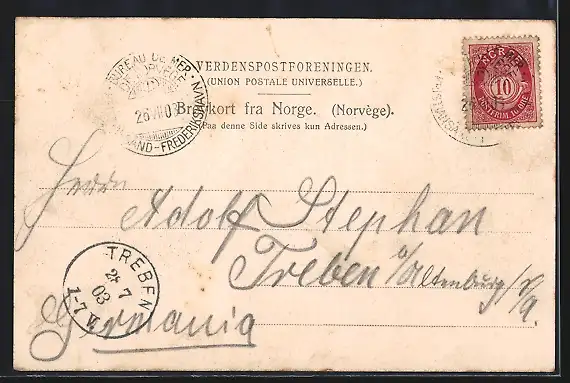 VERDENSPOSTFORENINGEN.
(UNION POSTALE UNIVERSELLE.)
Brevkort fra Norge. (Norvège).
(Paa denne Side skrives kun Adressen.)
BUREAU DE MER
26 VII 03
KRISTIANSAND-FREDERIKSHAVN
NORGE
10
POSTFRIM. 10 ØRE
Herrn
Adolf Stephan
Treben
b/Altenburg S/A.
Germania
TREBEN
7
03
1-7 V